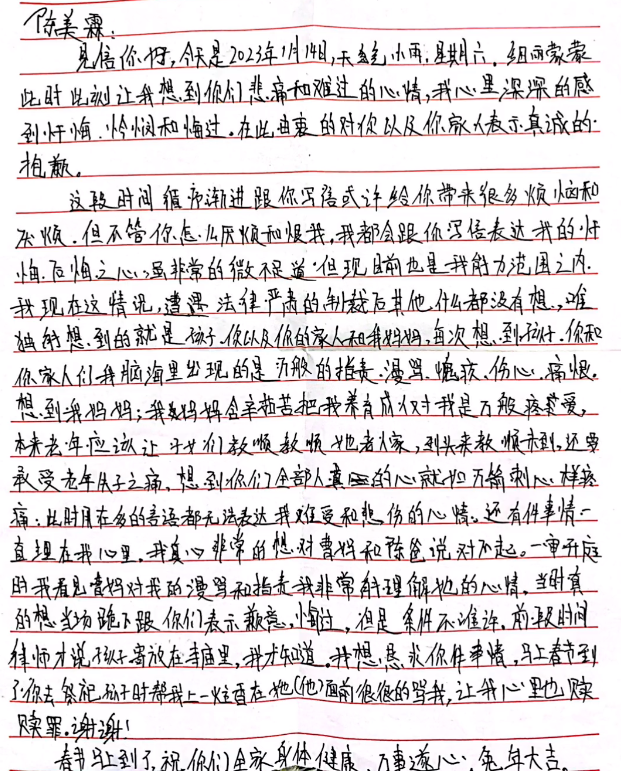 陈美霖:
见信你好,今天是2023年1月14日,天气小雨,星期六。细雨蒙蒙
此时此刻让我想到你们悲痛和难过的心情,我心里深深的感
到忏悔、怜悯和悔过。在此由衷的对你以及你家人表示真诚的
抱歉。
这段时间循序渐进跟你写信或许给你带来很多烦恼和
厌烦。但不管你怎么厌烦和恨我,我都会跟你写信表达我的忏
悔、后悔之心,虽非常的微不足道,但现目前也是我能力范围之内.
我现在这情况,遭遇法律严肃的制裁后其他什么都没有想,唯
独能想到的就是孩子、你以及你的家人和我妈妈,每次想到孩子、你和
你家人们我脑海里出现的是万般的指责、漫骂、愤孩、伤心、痛恨。
想到我妈妈;我妈妈含辛茹苦把我养育成人对我是万般疼爱,
本来老年应该让子女们教顺教顺她老人家,到头来教顺未到,还要
承受老年失子之痛。想到你们全部人真的心就如万箭刺心样疼
痛;此时用在多的言语都无法表达我难受和悲伤的心情。还有件事情一
直埋在我心里,我真心非常的想对曹妈和陈爸说对不起。一审开庭
时我看见曹妈对我的漫骂和指责我非常能理解她的心情,当时真
的想当场跪下跟你们表示歉意,悔过,但是条件不准许。前段时间
律师才说孩子寄放在寺庙里,我才知道。我想恳求你件事情,马上春节到
了你去祭祀孩子时帮我上一炷香在她(他)面前狠狠的骂我,让我心里也赎
赎罪。谢谢!
春节马上到了,祝你们全家身体健康、万事遂心、兔年大吉。